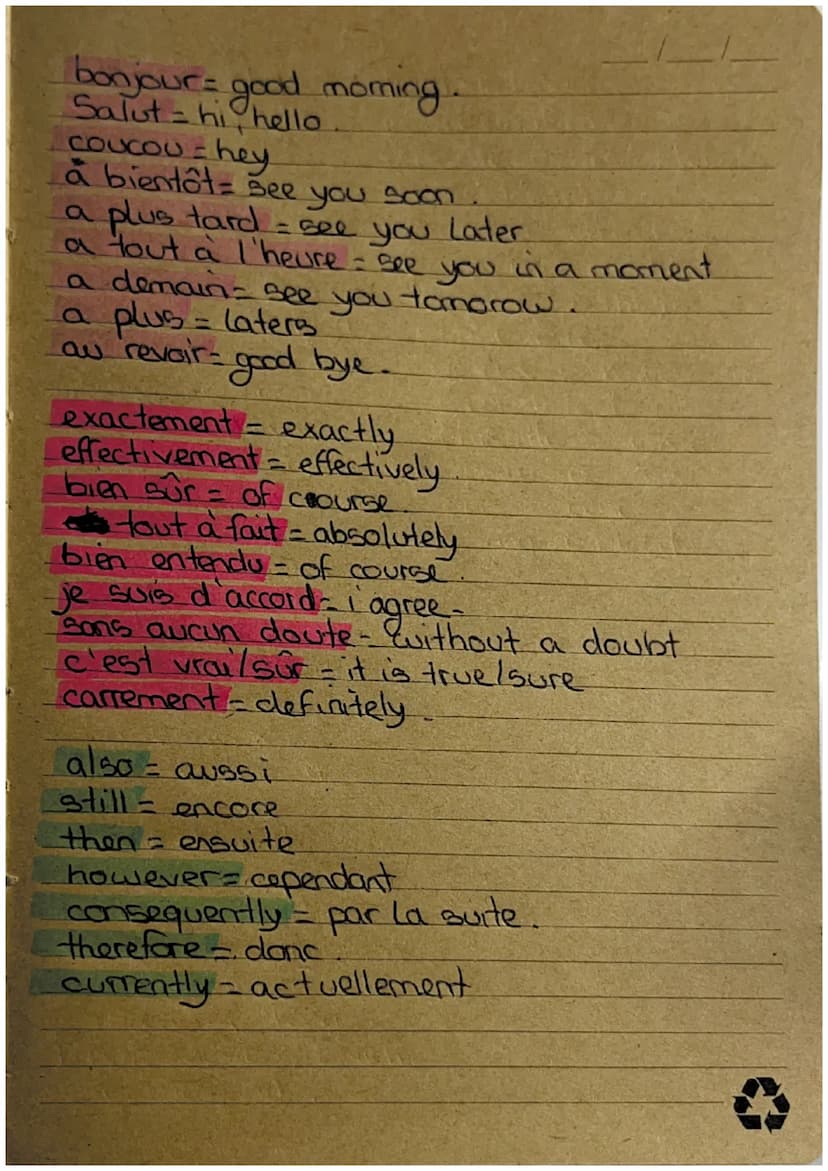 __/__/__
bonjour = good morning.
Salut = hi, hello.
coucou = hey
à bientôt = see you soon.
a plus tard = see you Later
a tout à l'heure = see you in a moment
a demain = see you tomorow.
a plus = laters
au revoir = good bye.
exactement = exactly
effectivement = effectively.
bien sûr = of course
tout à fait = absolutely
bien entendu = of course.
je suis d'accord = i agree.
sans aucun doute = without a doubt
c'est vrai/sûr = it is true/sure
carrement = definitely.
also = aussi
still = encore
then = ensuite
however = cependant
consequently = par la suite.
therefore = donc.
currently = actuellement